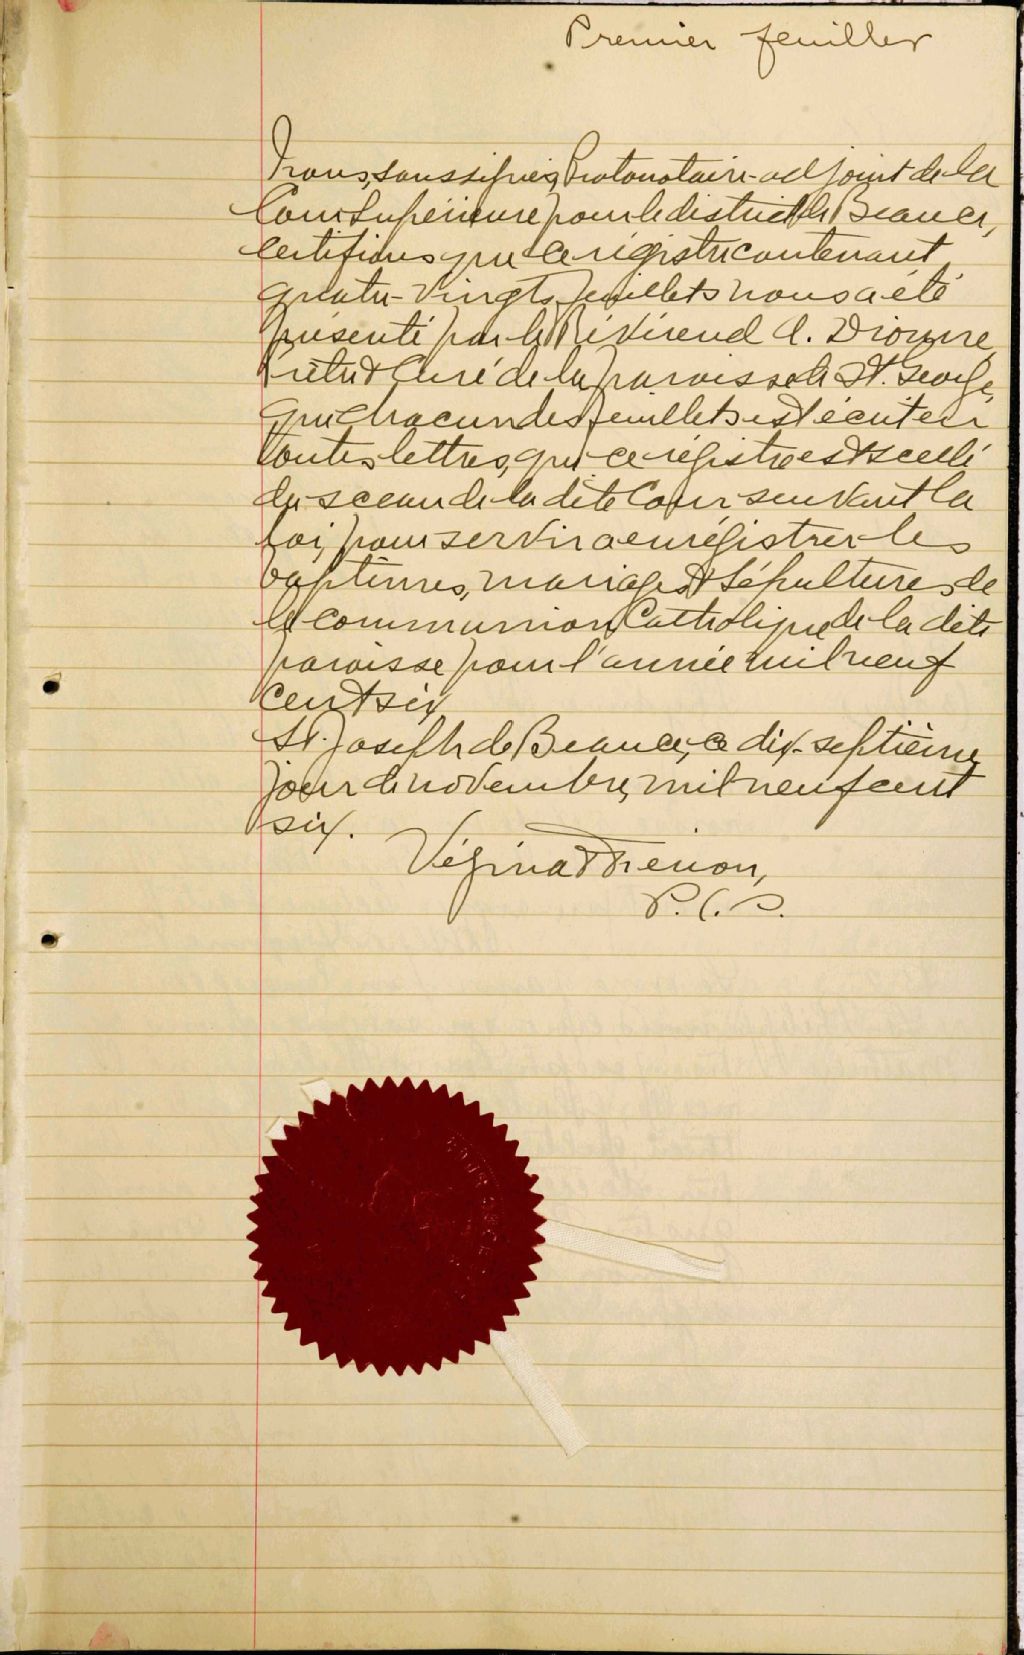 Premier feuillet
Nous, soussignés, Protonotaire-adjoint de la
Cour Supérieure pour le district de Beauce,
certifions que ce régistre contenant
quatre-vingts feuillets nous a été
présenté par le Révérend A. Dionne,
Prêtre & Curé de la paroisse de St. George,
que chacun des feuillets est écrit en
toutes lettres, que ce régistre est scellé
du sceau de la dite Cour suivant la
loi, pour servir a enrégistrer les
baptêmes, mariages & sépultures de
la communion Catholique de la dite
paroisse pour l'année mil neuf
cent six
St. Joseph de Beauce, ce dix-septième
jour de novembre, mil neuf cent
six.
Vézina & Therrien,
P. C. S.